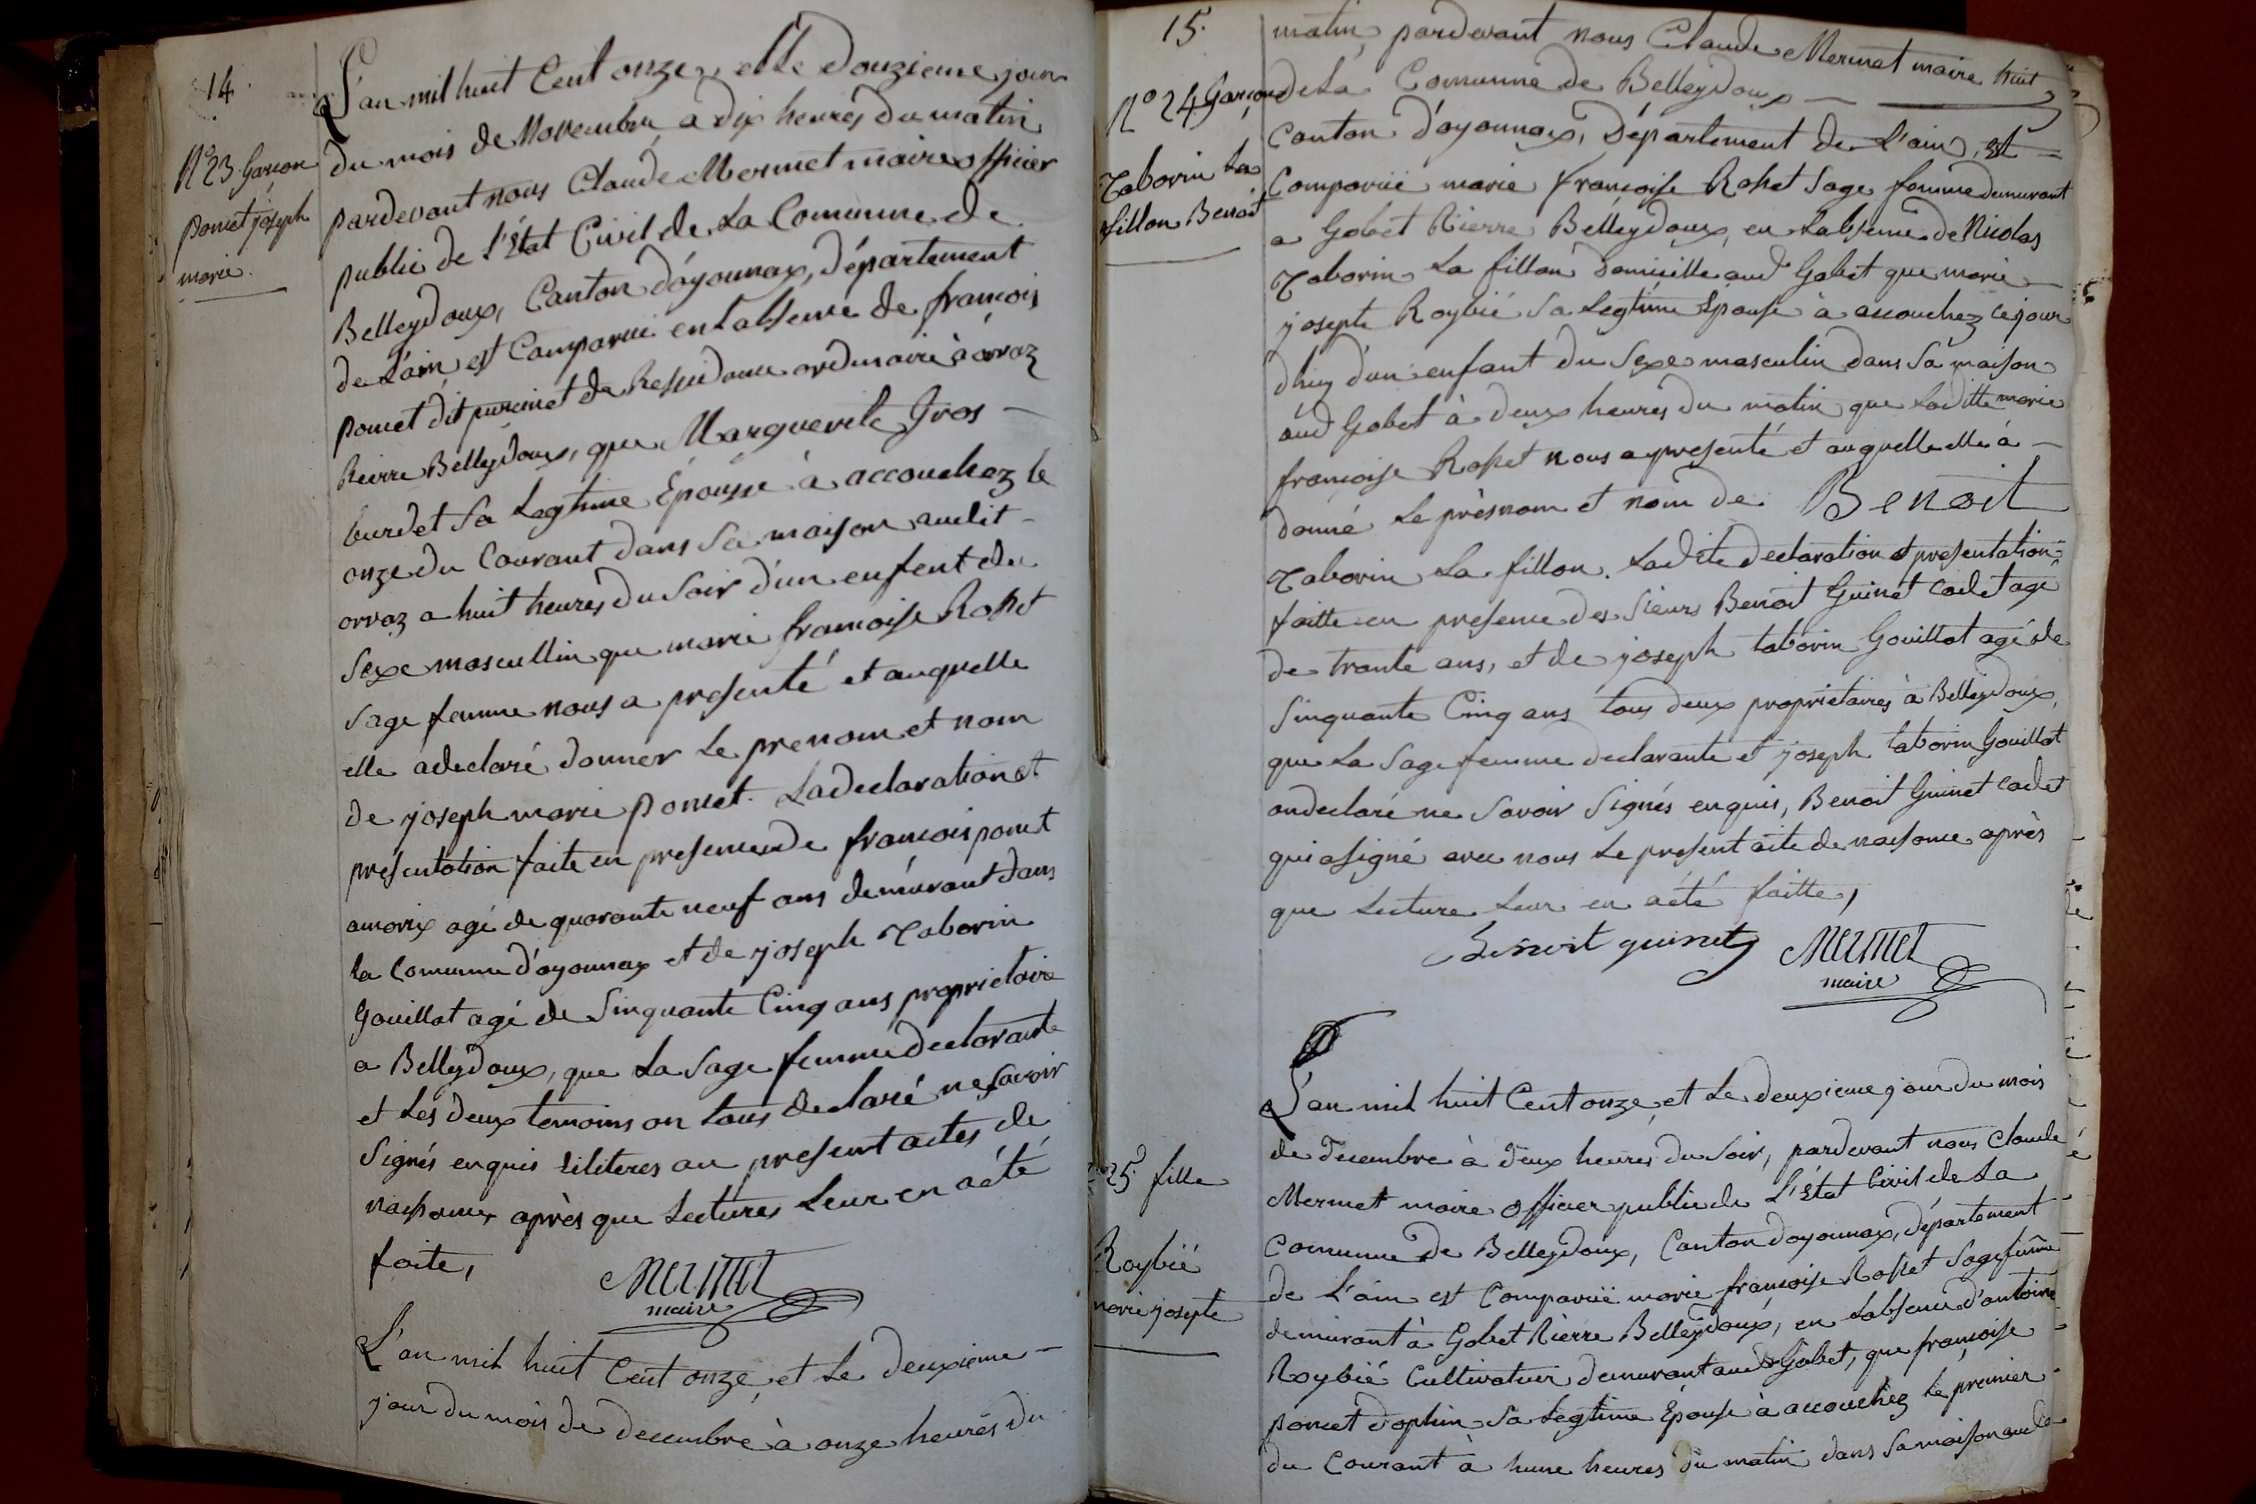 14.
N° 23 Garcon
poncet joseph
marie.
L'an mil huit Cent onze, et le Douzieme jour
du mois de Novembre a dix heures du matin
pardevant nous Claude Mermet maire officier
public de l'État Civil de La Commune de
Belleydoux, Canton d'oyonnax, département
de L'ain est Comparüe en Labsence de francois
poncet dit purinet de Residance ordinaire à orvaz
Rierre Belleydoux, que Marguerite Gros –
burdet Sa Legtime Épousse à accouchez le
onze du Courant dans Sa maison audit –
orvaz a huit heures du Soir d'un enfent du
Sexe mascullin que marie francoise Rosset
Sage femme nous a presenté et auquelle
elle a declaré donner Le prenom et nom
de joseph marie poncet. La declaration et
présentation faite en presence de francois poncet
amorix agé de quarante neuf ans demeurant dans
la Comune d'oyonnax et de joseph Taborin
Gouillot agé de Sinquante Cinq ans proprietaire
a Belleydoux, que La Sage femme declarante
et Les deux temoins on tous declaré ne Savoir
Signés enquis liliteres au present actes de
naissance après que Lectures Leur en a été
faite,
Mermet
maire
L'an mil huit Cent onze, et Le deuxieme –
jour du mois de decembre à onze heures du
15.
N° 24 Garcon
Taborin La
fillon Benoit
matin, pardevant nous Claude Mermet maire
de La Comunne de Belleydoux –
Canton d'oyonnax, Département de L'ain, Est –
Comparüe marie francoise Rosset Sage femme demurant
a Gobet Rierre Belleydoux, en Labsence de Nicolas
Taborin La fillon domicille aud Gobet que marie –
josepte Roybié Sa Legtime Épouse à accouchez ce jour
dhuy d'un enfant du Sexe masculin dans Sa maison
aud Gobet à deux heures du matin que Laditte marie
francoise Rosset nous a presenté et auquelle elle à –
donné Le prèsnom et nom de Benoit
Taborin La fillon. Ladite declaration et presentation
faitte en presence des Sieurs Benoit Guinet cadet agé
de trante ans, et de joseph taborin Gouillot agé de
Sinquante Cinq ans tous deux proprietaires à Belleydoux,
que La Sage femme declarante et joseph taborin Gouillot
on declaré ne Savoir Signés enquis, Benoit Guinet cadet
qui a signé avec nous Le present acte de naisance après
que Lecture Leur en a été faitte,
Benoit guinet Mermet
maire
25e fille
Roybié
marie josepte
L'an mil huit Cent onze et Le deuxieme jour du mois
de decembre à deux heures du Soir, pardevant nous Claude
Mermet maire officier public de L'état Civil de La
Comunne de Belleydoux, Canton d'oyonnax, département
de L'ain est Comparüe marie francoise Rosset Sage femme
demurant à Gobet Rierre Belleydoux, en Labsence d'antoine
Roybié Cultivateur demurant aud Gobet, que francoise
poncet dophin Sa Legtime Épouse à accouchez Le premier
du Courant à hune heures du matin dans Sa maison aud